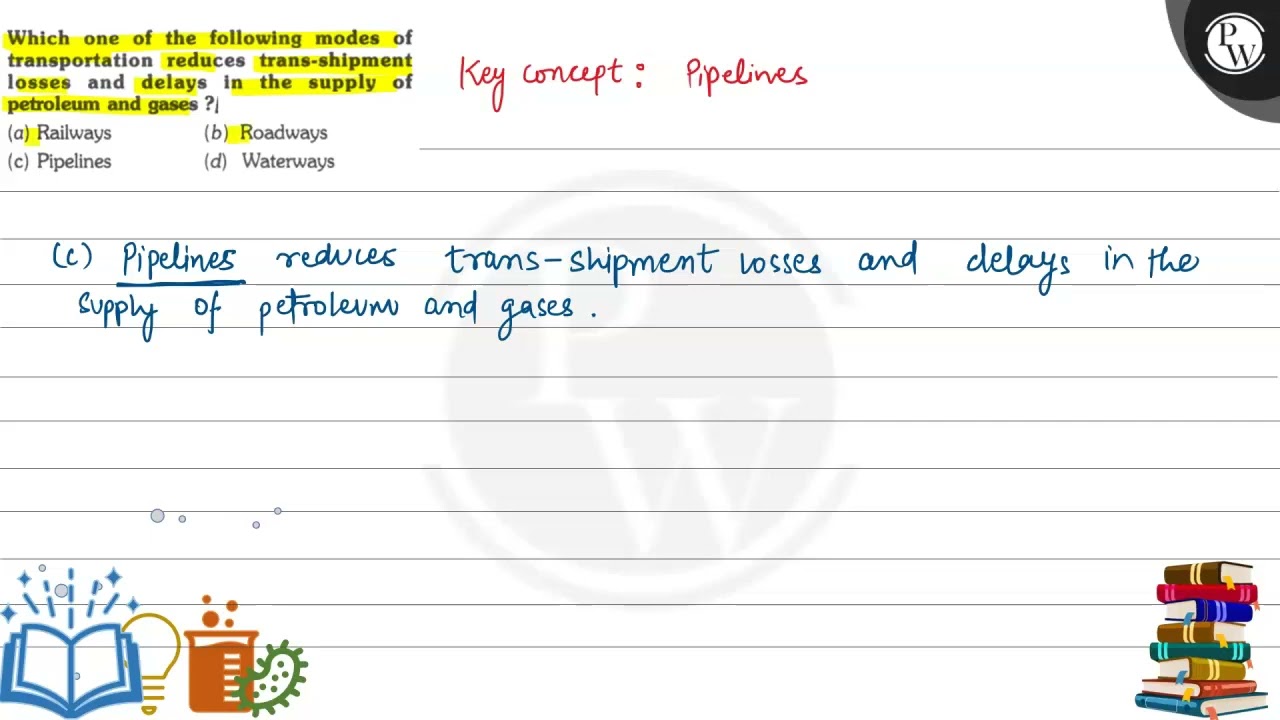 Which one of the following modes of
transportation reduces trans-shipment
losses and delays in the supply of
petroleum and gases ?
(a) Railways (b) Roadways
(c) Pipelines (d) Waterways
Key concept : Pipelines
PW
(c) Pipelines reduces trans-shipment losses and delays in the
supply of petroleum and gases .
PW